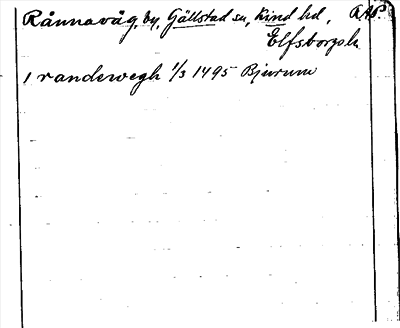 Rånnaväg, by, Gällstad sn, Kind hd, RAP.
Elfsborgs l.
1 randewegh 1/3 1495 Bjurum